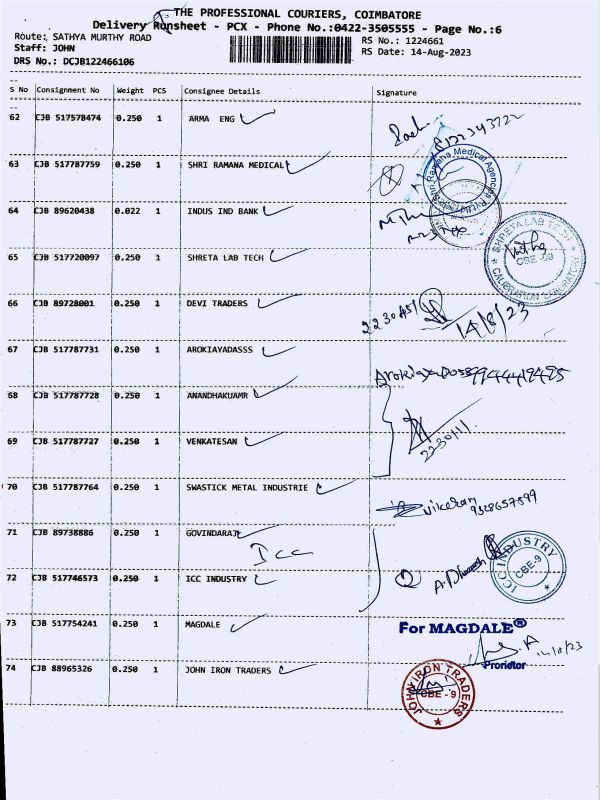 THE PROFESSIONAL COURIERS, COIMBATORE
Delivery Runsheet - PCX - Phone No.:0422-3505555 - Page No.:6
Route: SATHYA MURTHY ROAD
RS No.: 1224661
Staff: JOHN
RS Date: 14-Aug-2023
DRS No.: DCJB122466106
S No Consignment No Weight PCS Consignee Details Signature
62 CJB 517578474 0.250 1 ARMA ENG
63 CJB 517787759 0.250 1 SHRI RAMANA MEDICAL
Shri Ramana Medical Agencies
64 CJB 89620438 0.022 1 INDUS IND BANK
65 CJB 517720097 0.250 1 SHRETA LAB TECH
SHRETA LAB TECH
CBE-09
CALIBRATION LABORATORY
66 CJB 89728001 0.250 1 DEVI TRADERS
14/8/23
67 CJB 517787731 0.250 1 AROKIAYADASSS
68 CJB 517787728 0.250 1 ANANDHAKUAMR
69 CJB 517787727 0.250 1 VENKATESAN
70 CJB 517787764 0.250 1 SWASTICK METAL INDUSTRIE
71 CJB 89738886 0.250 1 GOVINDARAJ
Icc
ICC INDUSTRY
CBE-9
72 CJB 517746573 0.250 1 ICC INDUSTRY
73 CJB 517754241 0.250 1 MAGDALE
For MAGDALE®
Prorietor
74 CJB 88965326 0.250 1 JOHN IRON TRADERS
JOHN IRON TRADERS
CBE - 9